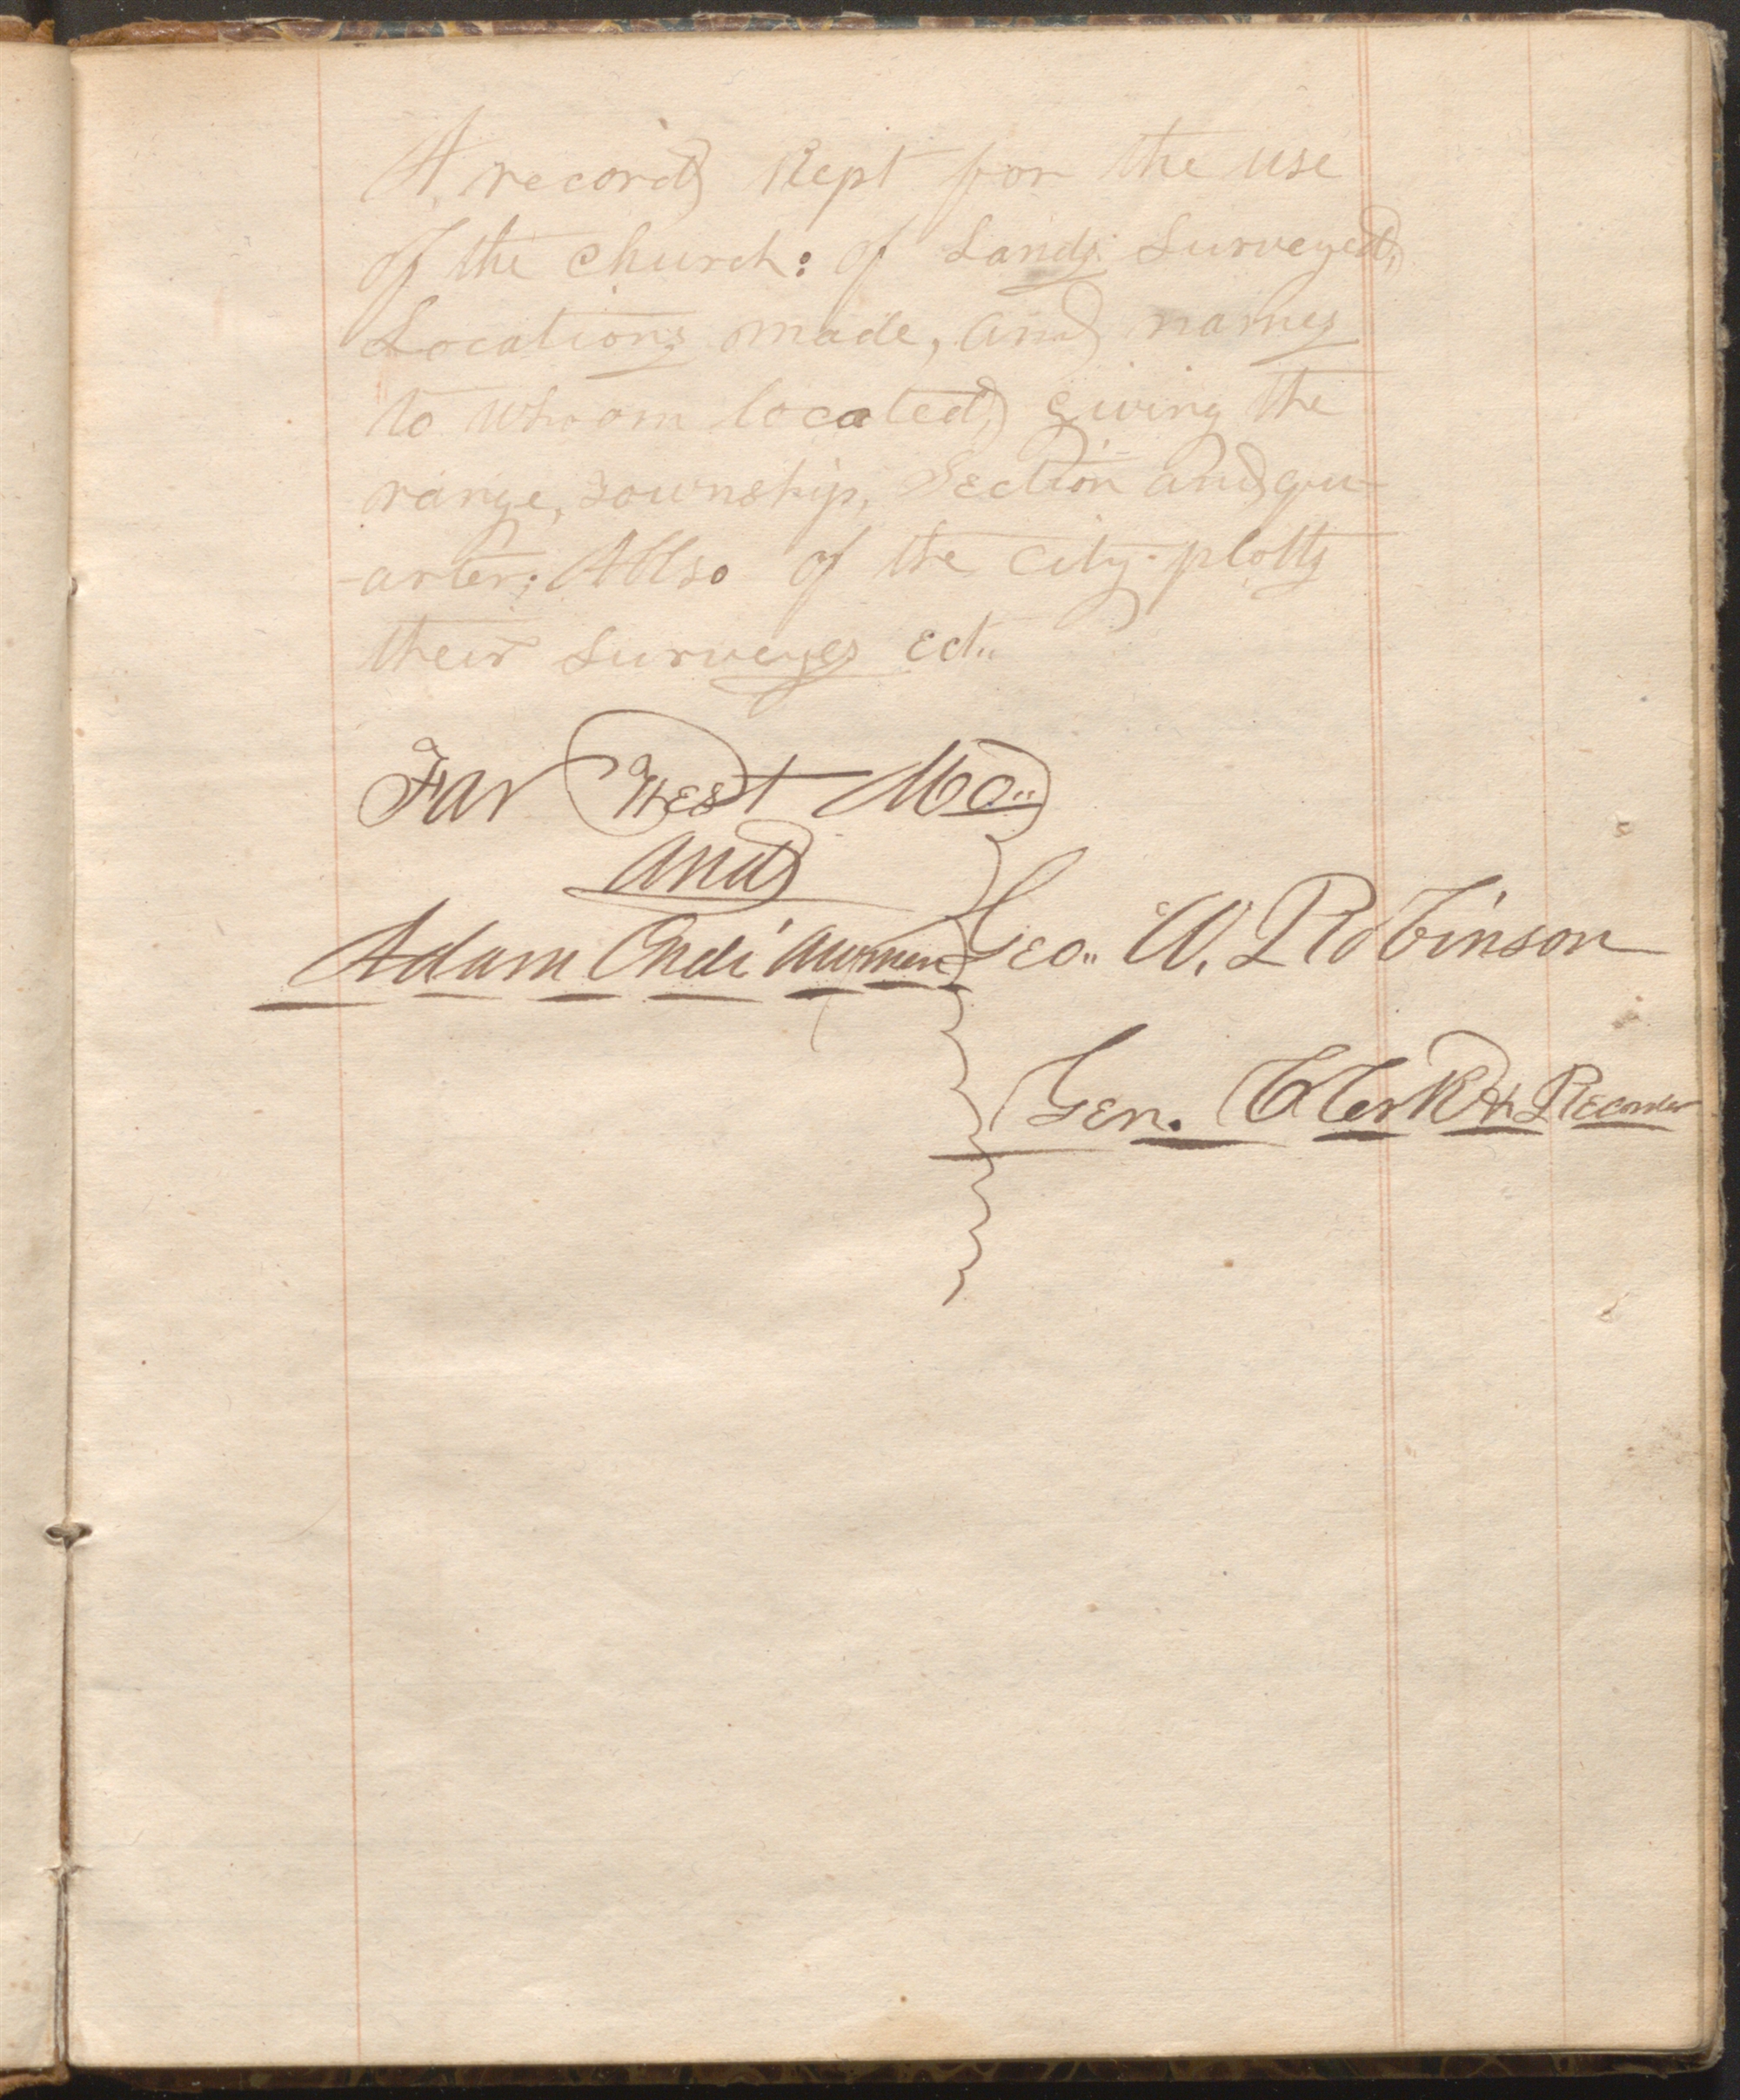 A record kept for the use
of the church: of Lands Surveyed,
Locations made, and names
to whom located, giving the
range, township, Section and qu-
-arter; Allso of the city plotts
their surveyes ect..
Far West Mo..
and
Adam Ondi Awmen
Geo.. W. Robinson
Gen. Clerk & Recorder